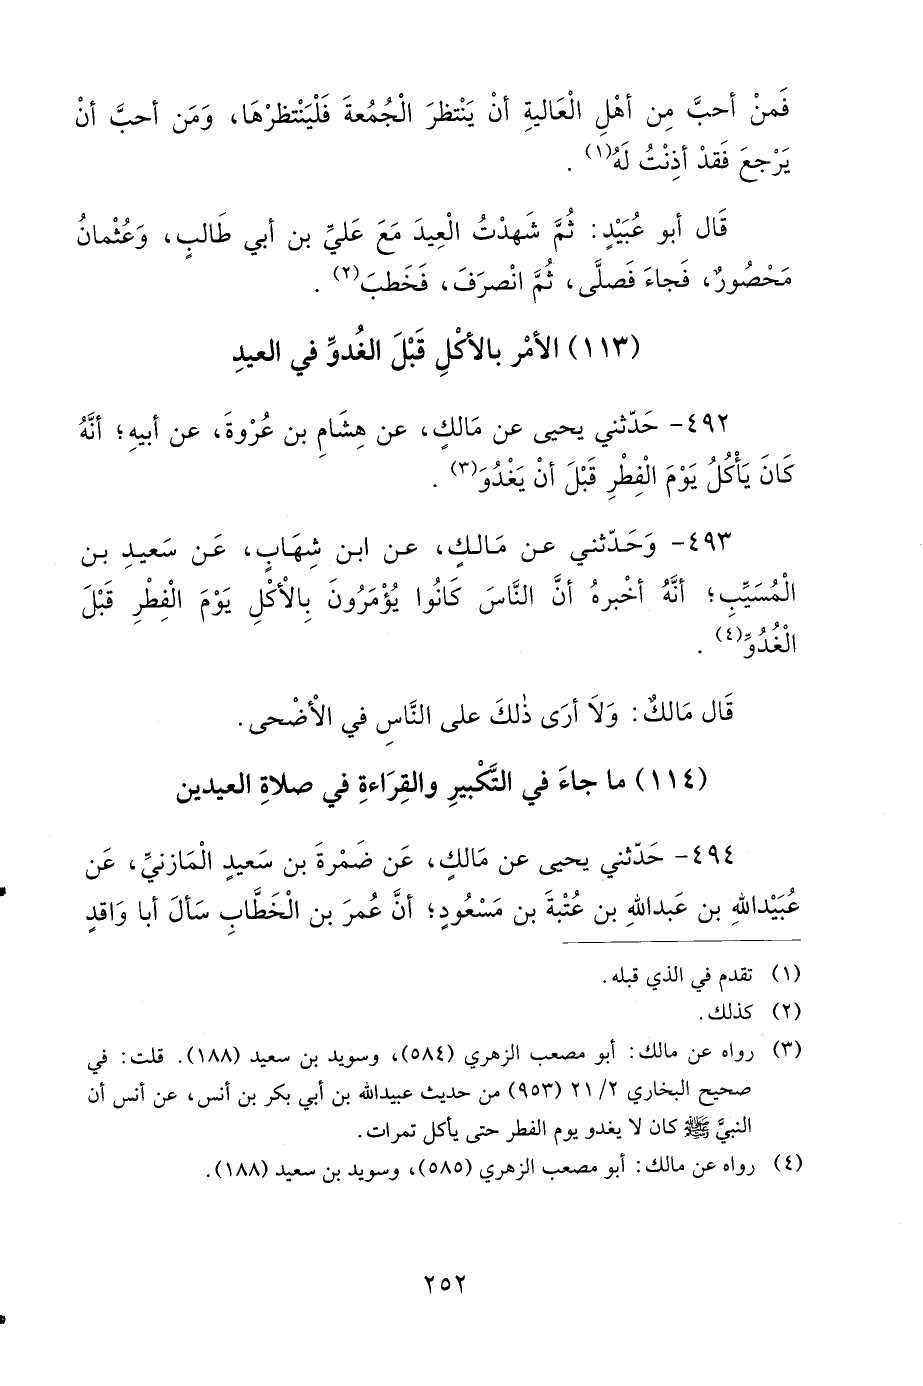 فَمنْ أحبَّ مِن أهْلِ الْعَاليةِ أنْ يَنْتظرَ الْجُمُعةَ فَلْيَنْتظرْهَا، وَمَن أحبَّ أنْ
يَرْجعَ فَقدْ أذِنْتُ لَهُ(١) .
قَال أبو عُبَيْدٍ: ثُمَّ شَهدْتُ الْعِيدَ مَعَ عَليِّ بن أبي طَالبٍ، وَعُثْمانُ
مَحْصُورٌ، فَجاءَ فَصلَّى، ثُمَّ انْصرَفَ، فَخَطبَ(٢) .
(١١٣) الأمْر بالأكْلِ قَبْلَ الغُدوِّ في العيدِ
٤٩٢- حَدّثني يحيى عن مَالكٍ، عن هِشَامِ بن عُرْوةَ، عن أبيهِ؛ أنَّهُ
كَانَ يَأْكُلُ يَوْمَ الْفِطْرِ قَبْلَ أنْ يَغْدُوَ(٣) .
٤٩٣- وَحَدّثني عن مَالكٍ، عن ابن شِهَابٍ، عَن سَعيدِ بن
الْمُسَيِّبِ؛ أنَّهُ أخْبرهُ أنَّ النَّاسَ كَانُوا يُؤْمَرُونَ بِالأْكْلِ يَوْمَ الْفِطْرِ قَبْلَ
الْغُدُوِّ(٤) .
قَال مَالكٌ: وَلاَ أرَى ذٰلكَ على النَّاسِ في الأْضْحى.
(١١٤) ما جاءَ في التَّكْبيرِ والقِرَاءةِ في صلاةِ العيدين
٤٩٤- حَدّثني يحيى عن مَالكٍ، عَن ضَمْرةَ بن سَعيدٍ الْمَازنيِّ، عَن
عُبَيْداللهِ بن عَبدالله بن عُتْبةَ بن مَسْعُودٍ؛ أنَّ عُمرَ بن الْخَطَّابِ سَألَ أبا وَاقدٍ
(١) تقدم في الذي قبله.
(٢) كذلك.
(٣) رواه عن مالك: أبو مصعب الزهري (٥٨٤)، وسويد بن سعيد (١٨٨). قلت: في
صحيح البخاري ٢/ ٢١ (٩٥٣) من حديث عبيدالله بن أبي بكر بن أنس، عن أنس أن
النبيَّ ﷺ كان لا يغدو يوم الفطر حتى يأكل تمرات.
(٤) رواه عن مالك: أبو مصعب الزهري (٥٨٥)، وسويد بن سعيد (١٨٨).
٢٥٢